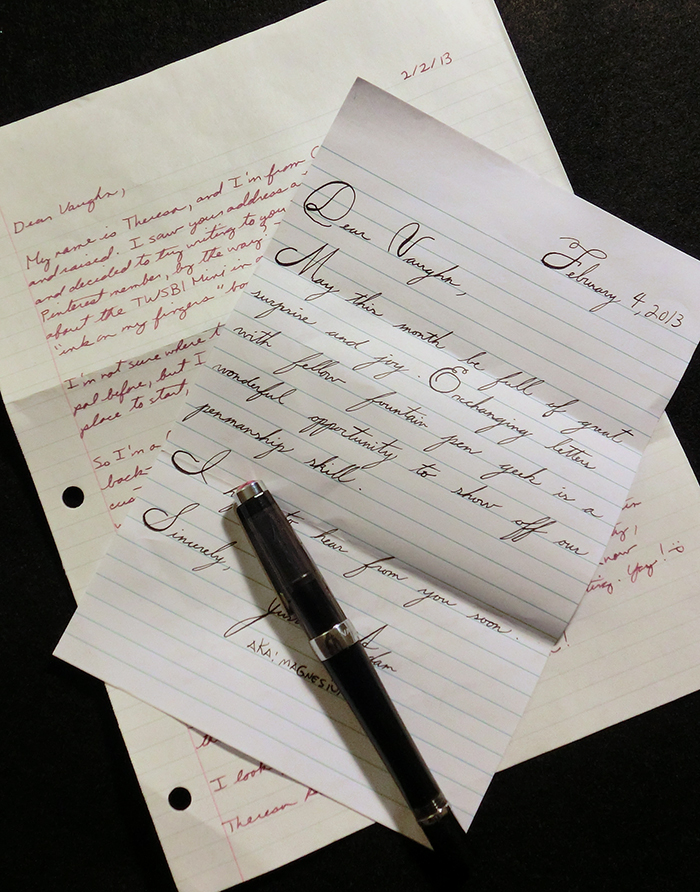 2/2/13
Dear Vaughn,
My name is Theresa, and I'm from
and raised. I saw your address a
and decided to try writing to you
Pinterest member, by the way
about the TWSBI Mini in
"ink on my fingers"
I'm not sure where
pal before, but I
place to start,
So I'm a
back-
I look
Theresa
now
Yay!
February 4, 2013
Dear Vaughn,
May this month be full of great
surprise and joy. Exchanging letters
with fellow fountain pen geek is a
wonderful opportunity to show off our
penmanship skill.
I to hear from you soon.
Sincerely,
Adam
AKA: MAGNESIUM